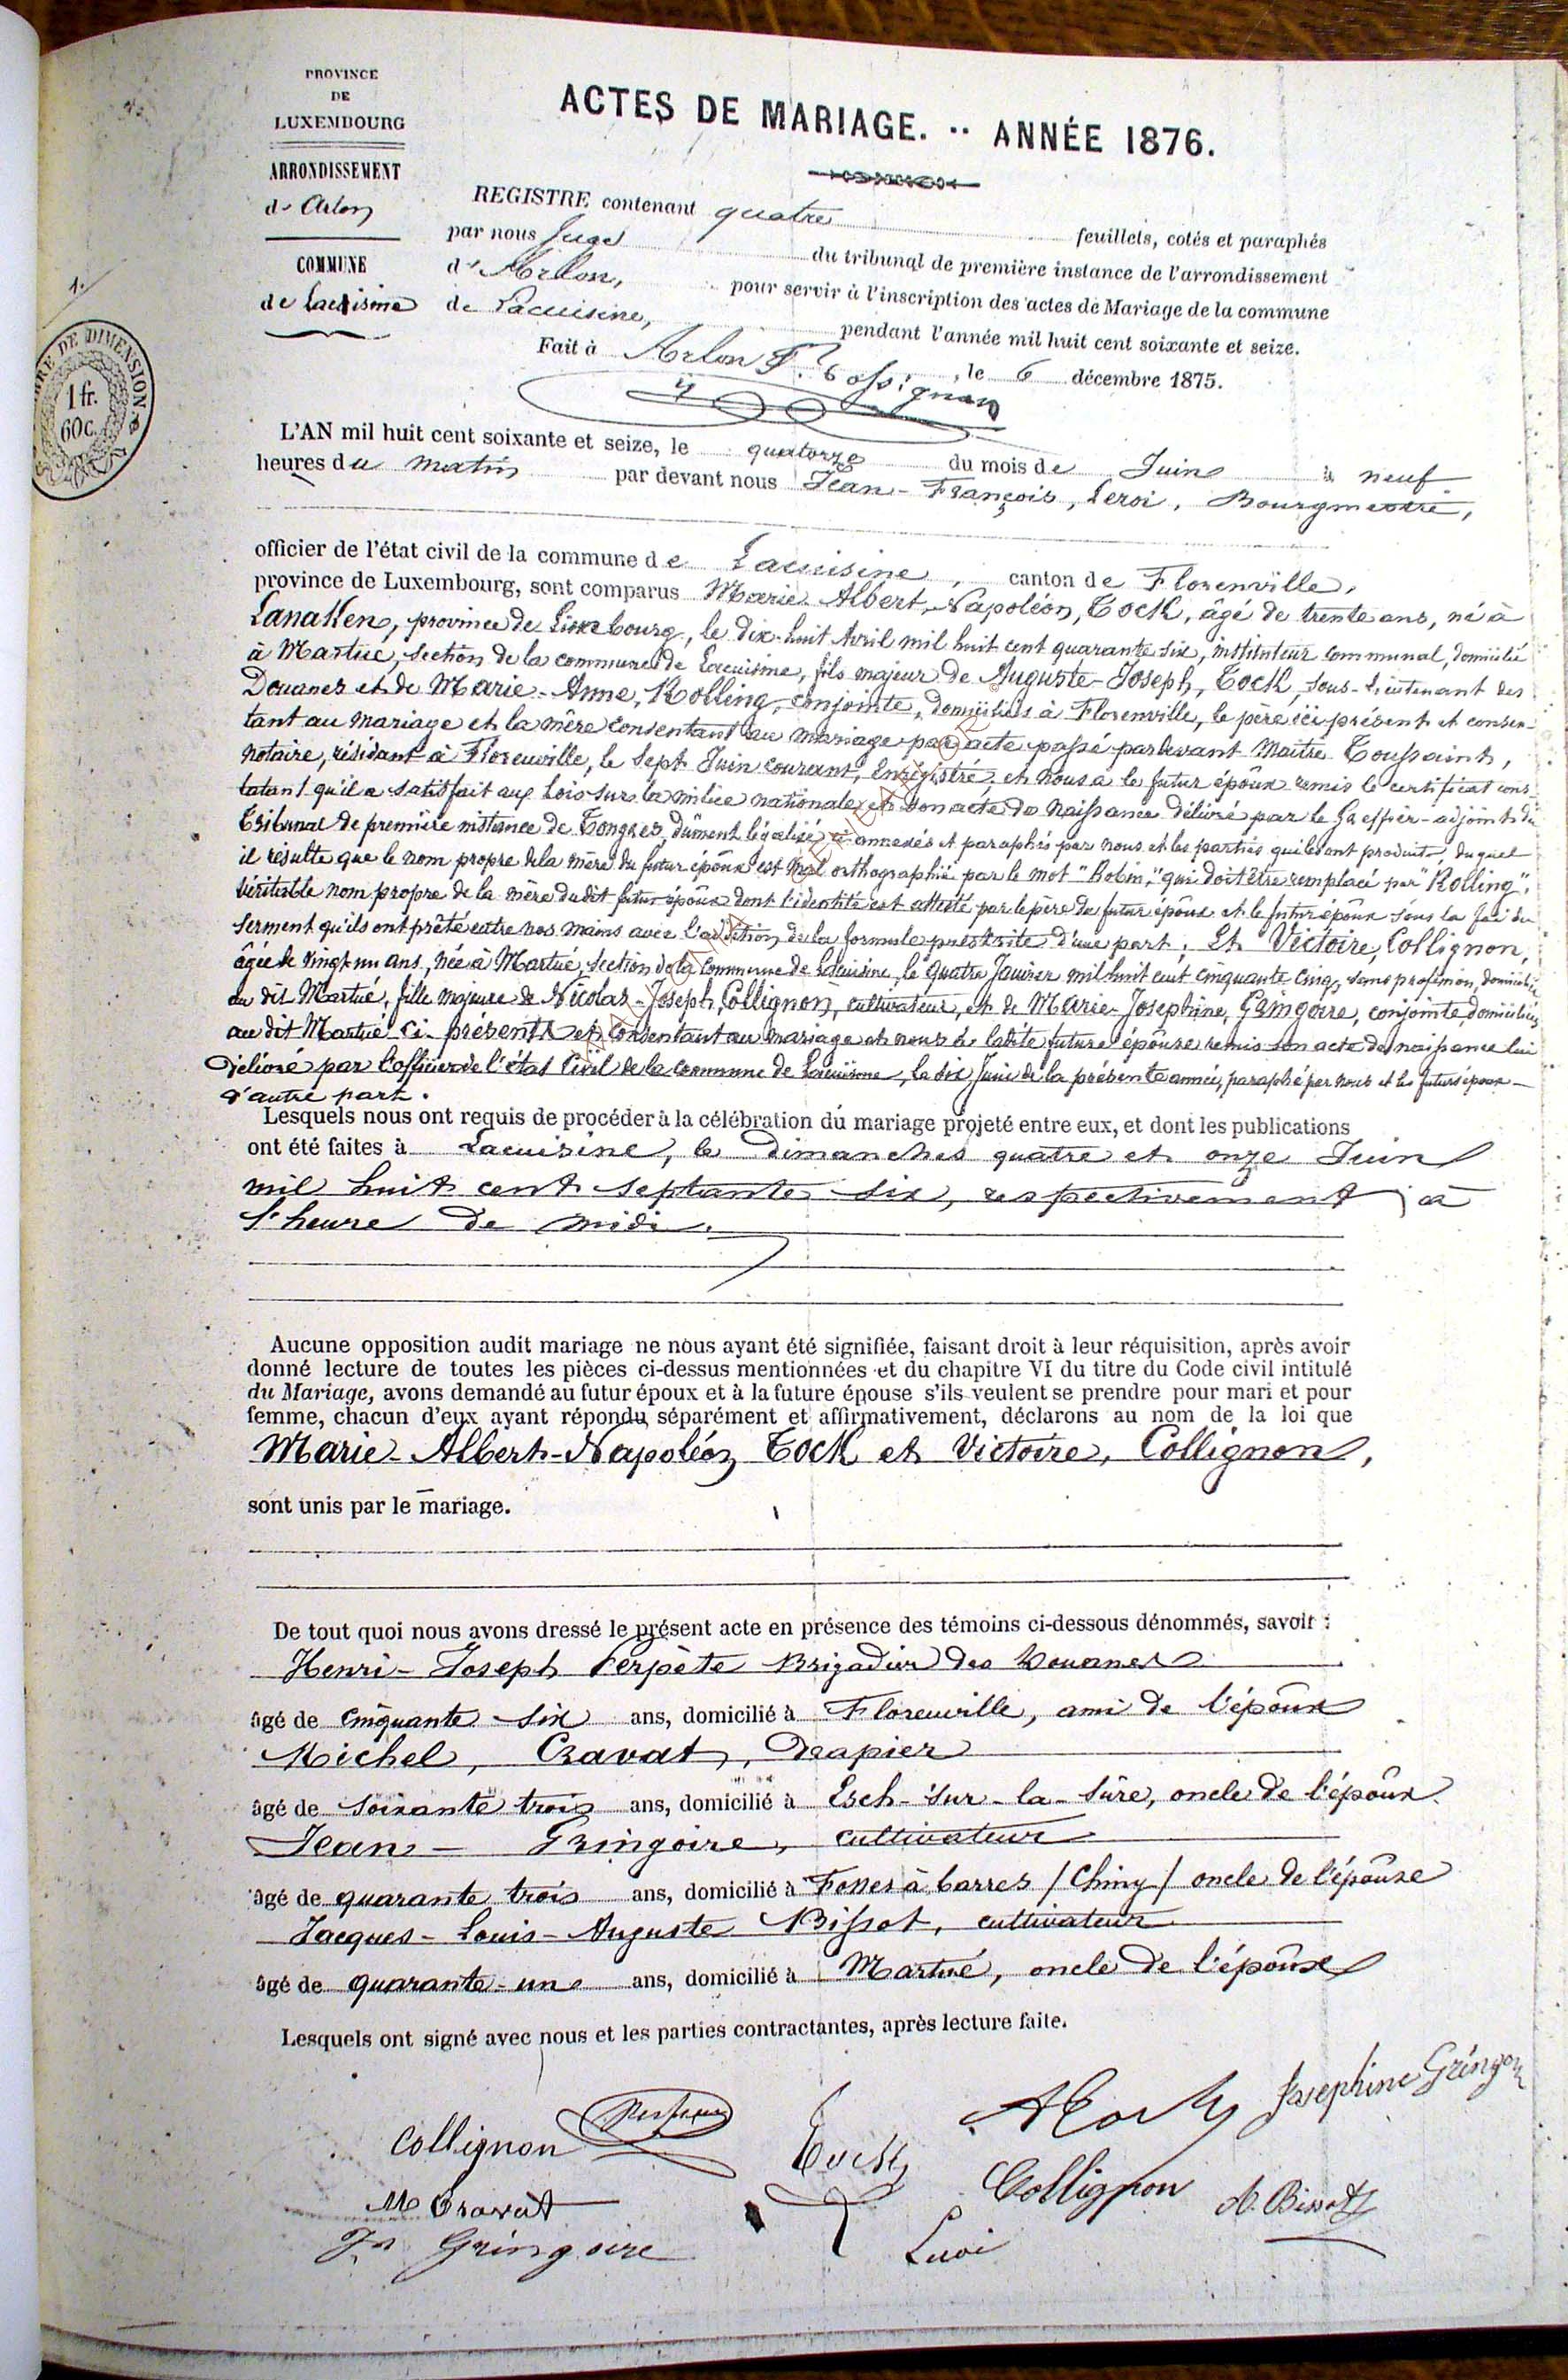 PROVINCE
DE
LUXEMBOURG
ARRONDISSEMENT
d' Arlon
COMMUNE
de Lacuisine
1.
TIMBRE DE DIMENSION
1 fr.
60 c.
ACTES DE MARIAGE. -- ANNÉE 1876.
REGISTRE contenant quatre feuillets, cotés et paraphés
par nous Juge du tribunal de première instance de l'arrondissement
d' Arlon, pour servir à l'inscription des actes de Mariage de la commune
de Lacuisine, pendant l'année mil huit cent soixante et seize.
Fait à Arlon, le 6 décembre 1875.
F. Tossignan
L'AN mil huit cent soixante et seize, le quatorze du mois de Juin à neuf
heures du matin par devant nous Jean-François, Leroi, Bourgmestre,
officier de l'état civil de la commune de Lacuisine, canton de Florenville,
province de Luxembourg, sont comparus Marie-Albert-Napoléon, Tock, âgé de trente ans, né à
Lanaken, province de Limbourg, le dix-huit Avril mil huit cent quarante six, instituteur communal, domicilié
à Martué, section de la commune de Lacuisine, fils majeur de Auguste-Joseph, Tock, sous-lieutenant des
Douanes et de Marie-Anne, Rolling, conjointe, domiciliés à Florenville, le père ici présent et consen-
tant au mariage et la mère consentant au mariage par acte passé pardevant Maître Toussaint,
notaire, résidant à Florenville, le sept Juin courant, Enregistré, et nous a le futur époux remis le certificat cons-
tatant qu'il a satisfait aux Lois sur la milice nationale et son acte de naissance délivré par le Greffier-adjoint du
Tribunal de première instance de Tongres, dûment légalisé et annexés et paraphés par nous et les parties qui les ont produits, duquel
il résulte que le nom propre de la mère du futur époux est mal orthographié par le mot "Robin," qui doit être remplacé par "Rolling",
véritable nom propre de la mère dudit futur époux dont l'identité est attesté par le père du futur époux et le futur époux sous la foi du
serment qu'ils ont prêté entre nos mains avec l'addition de la formule prescrite d'une part; Et Victoire, Collignon,
âgée de vingt un ans, née à Martué, section de la commune de Lacuisine, le quatre Janvier mil huit cent cinquante cinq, sans profession, domiciliée
au dit Martué, fille majeure de Nicolas-Joseph, Collignon, cultivateur, et de Marie-Josephine, Gringoire, conjointe, domiciliés
au dit Martué ci-présents et consentant au mariage et nous a ladite future épouse remis son acte de naissance lui
délivré par l'officier de l'état civil de la commune de Lacuisine, le dix Juin de la présente année, paraphé par nous et les futurs époux -
d'autre part.
Lesquels nous ont requis de procéder à la célébration du mariage projeté entre eux, et dont les publications
ont été faites à Lacuisine, le dimanches quatre et onze Juin
mil huit cent septante six, respectivement à
l'heure de midi.
Aucune opposition audit mariage ne nous ayant été signifiée, faisant droit à leur réquisition, après avoir
donné lecture de toutes les pièces ci-dessus mentionnées et du chapitre VI du titre du Code civil intitulé
du Mariage, avons demandé au futur époux et à la future épouse s'ils veulent se prendre pour mari et pour
femme, chacun d'eux ayant répondu séparément et affirmativement, déclarons au nom de la loi que
Marie-Albert-Napoléon Tock et Victoire, Collignon,
sont unis par le mariage.
De tout quoi nous avons dressé le présent acte en présence des témoins ci-dessous dénommés, savoir :
Henri-Joseph Perpète Brigadier des Douanes
âgé de cinquante-six ans, domicilié à Florenville, ami de l'époux
Michel, Cravat, Drapier
âgé de soixante trois ans, domicilié à Esch-sur-la-Sûre, oncle de l'époux
Jean - Gringoire, cultivateur
âgé de quarante trois ans, domicilié à Fosses à barres /Chiny/ oncle de l'épouse
Jacques-Louis-Auguste Bissot, cultivateur
âgé de quarante-un ans, domicilié à Martué, oncle de l'épouse
Lesquels ont signé avec nous et les parties contractantes, après lecture faite.
Collignon
Tock
A Tock
Josephine Gringoire
M Cravat
Collignon
A. Bissot
Jn Gringoire
Leroi